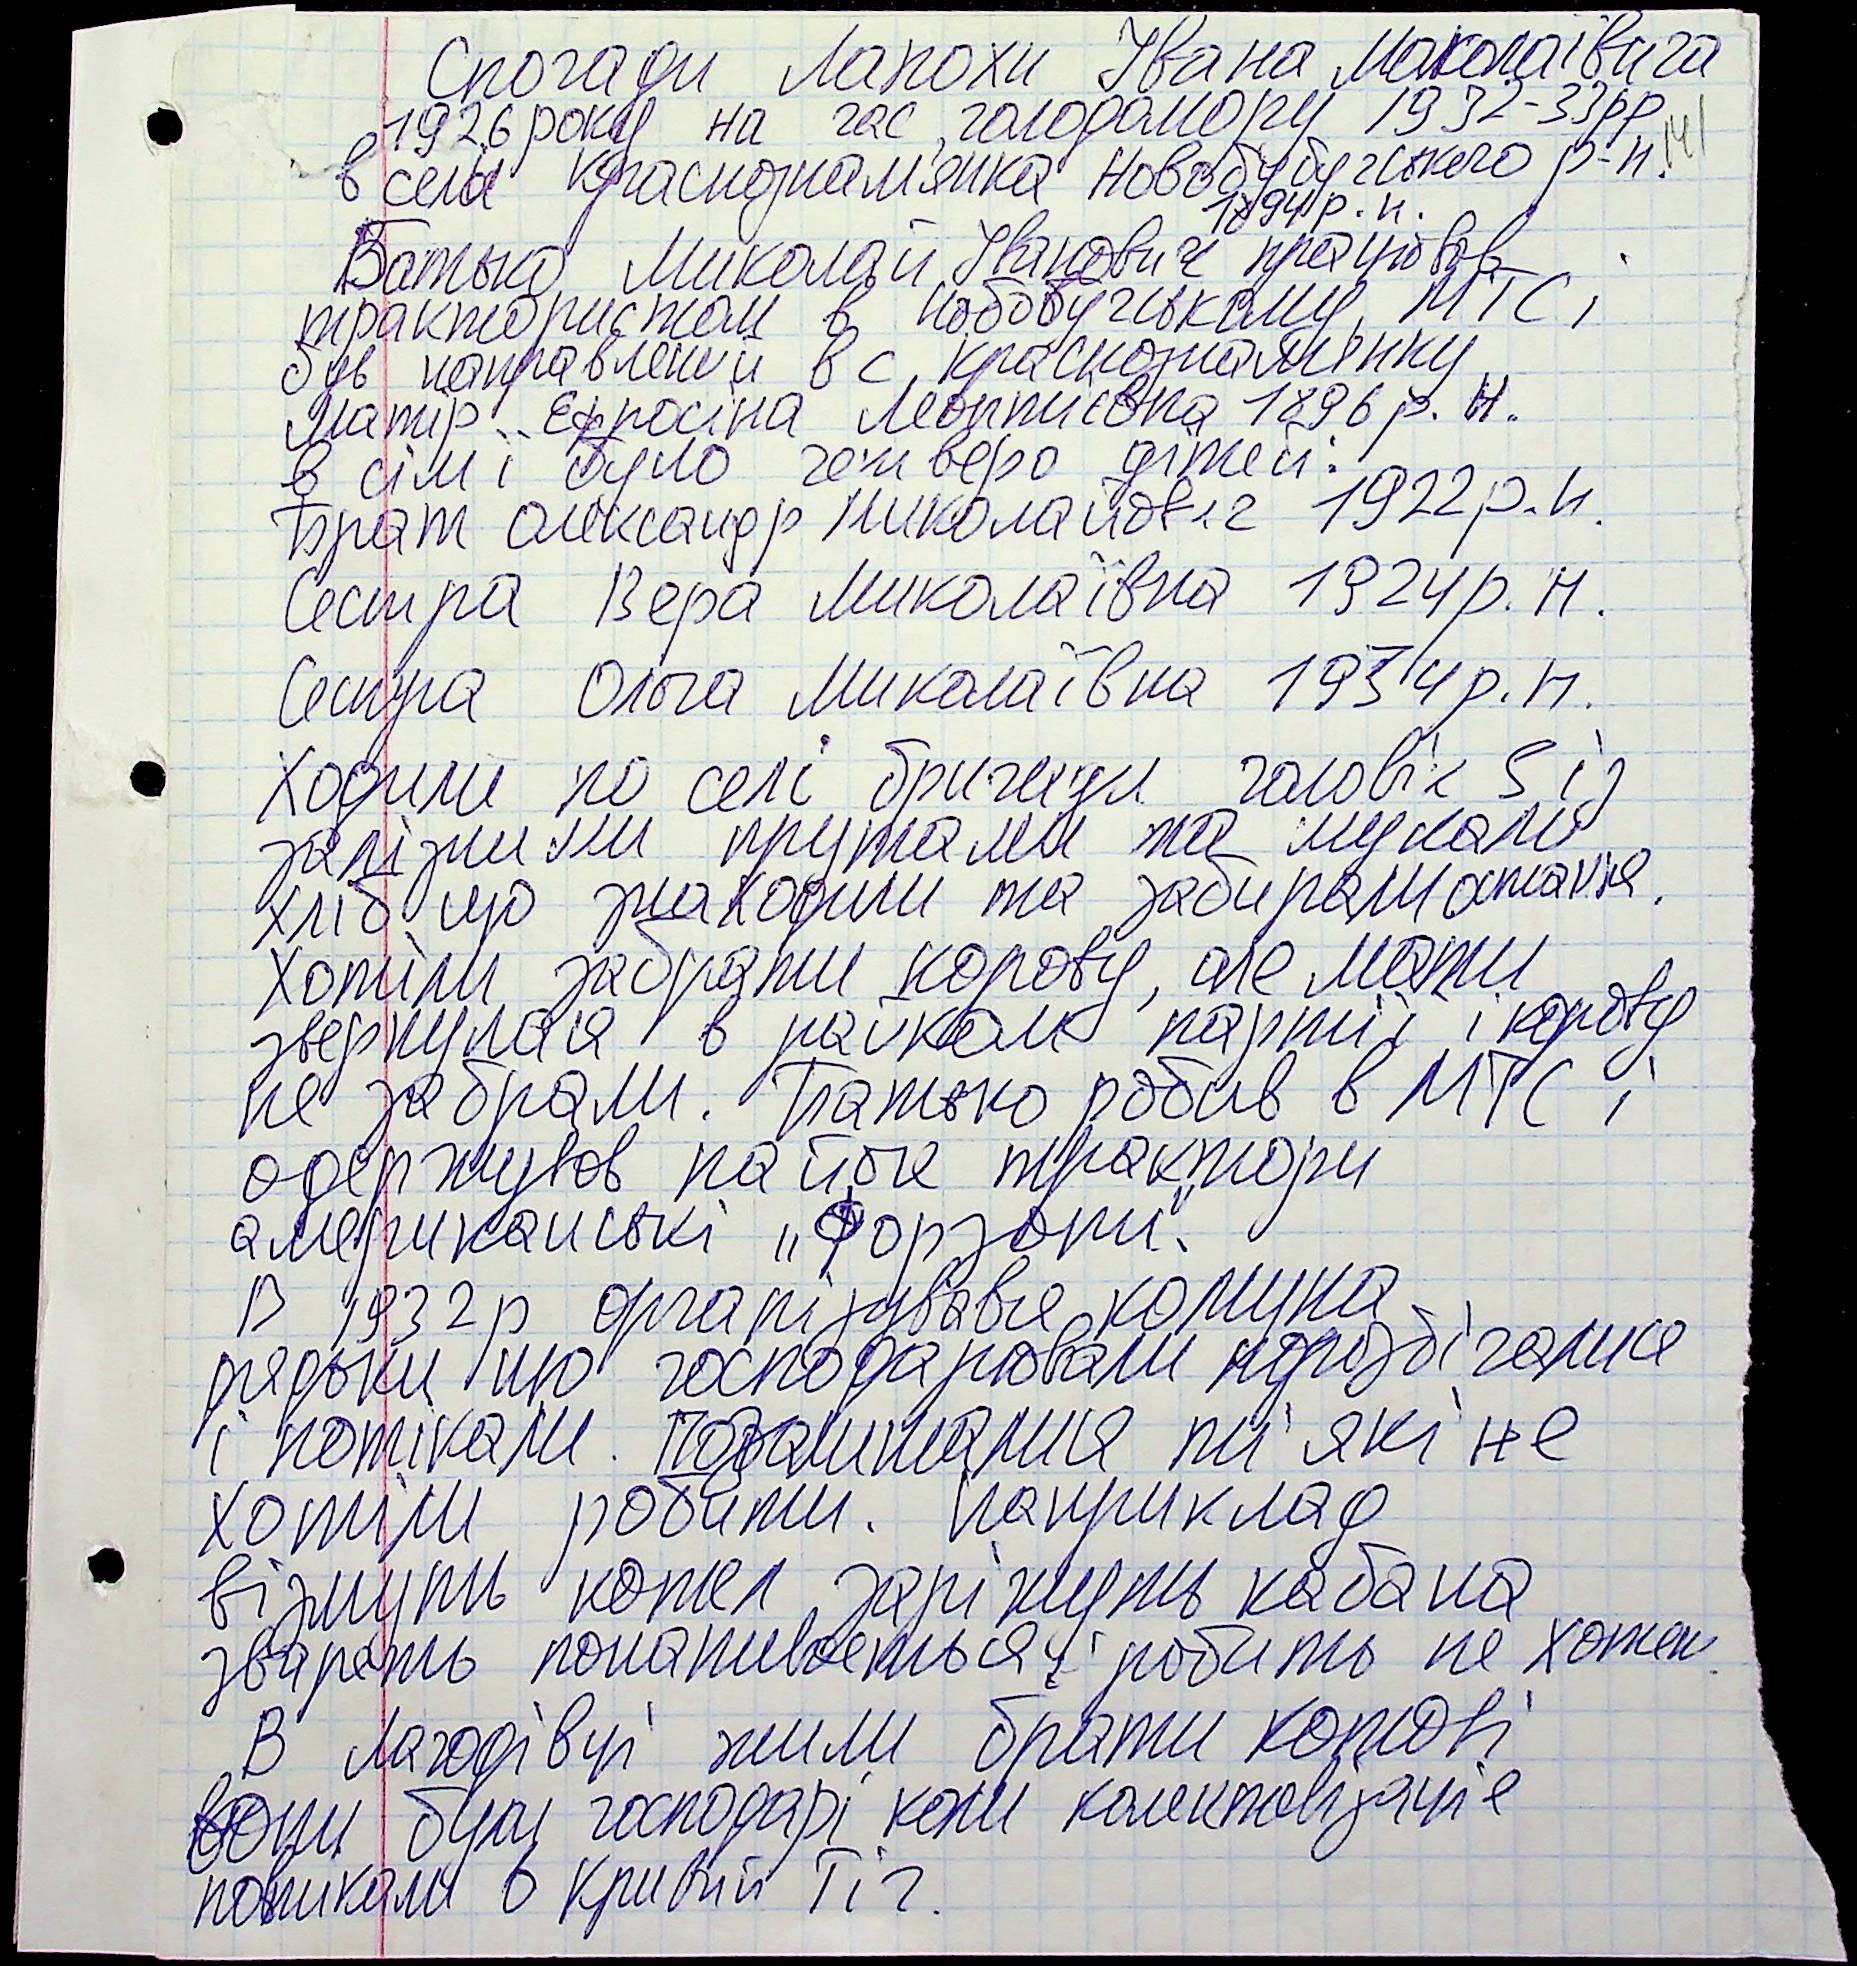 Спогади Лапохи Івана Миколаївича
1926 року на час голодомору 1932-33рр
в селі Краснознам'янка Новобузького р-н.
1894 р. н.
Батько Миколай Іванович працював
трактористом в Новобузькому МТС і
був направлений в с Краснознам'янку
Матір Єфросіна 1896 р. н.
в сім'ї було четверо дітей:
Брат Олександр Миколайович 1922 р. н.
Сестра Вера Миколаївна 1924 р. н.
Сестра Ольга Миколаївна 1934 р. н.
Ходили по селі бригади чоловік 5 із
залізними прутами та шукали
хліб що знаходили та забирали останнє.
Хотіли забрати корову, але мати
звернулася в райком партії і корову
не забрали. Батько робив в МТС і
одержував пайок трактори
американські „Фордзони".
В 1932р організувався комуна
дядьки що господарювали порозбігалися
і потікали. Позалишалися ти які не
хотіли робити. Наприклад
візмуть котел заріжуть кабана
зварять і робить не хотен.
В Лагодівці жили брати Котові
вони були господарі коли колективізаціє
потикали в Кривий Ріг.